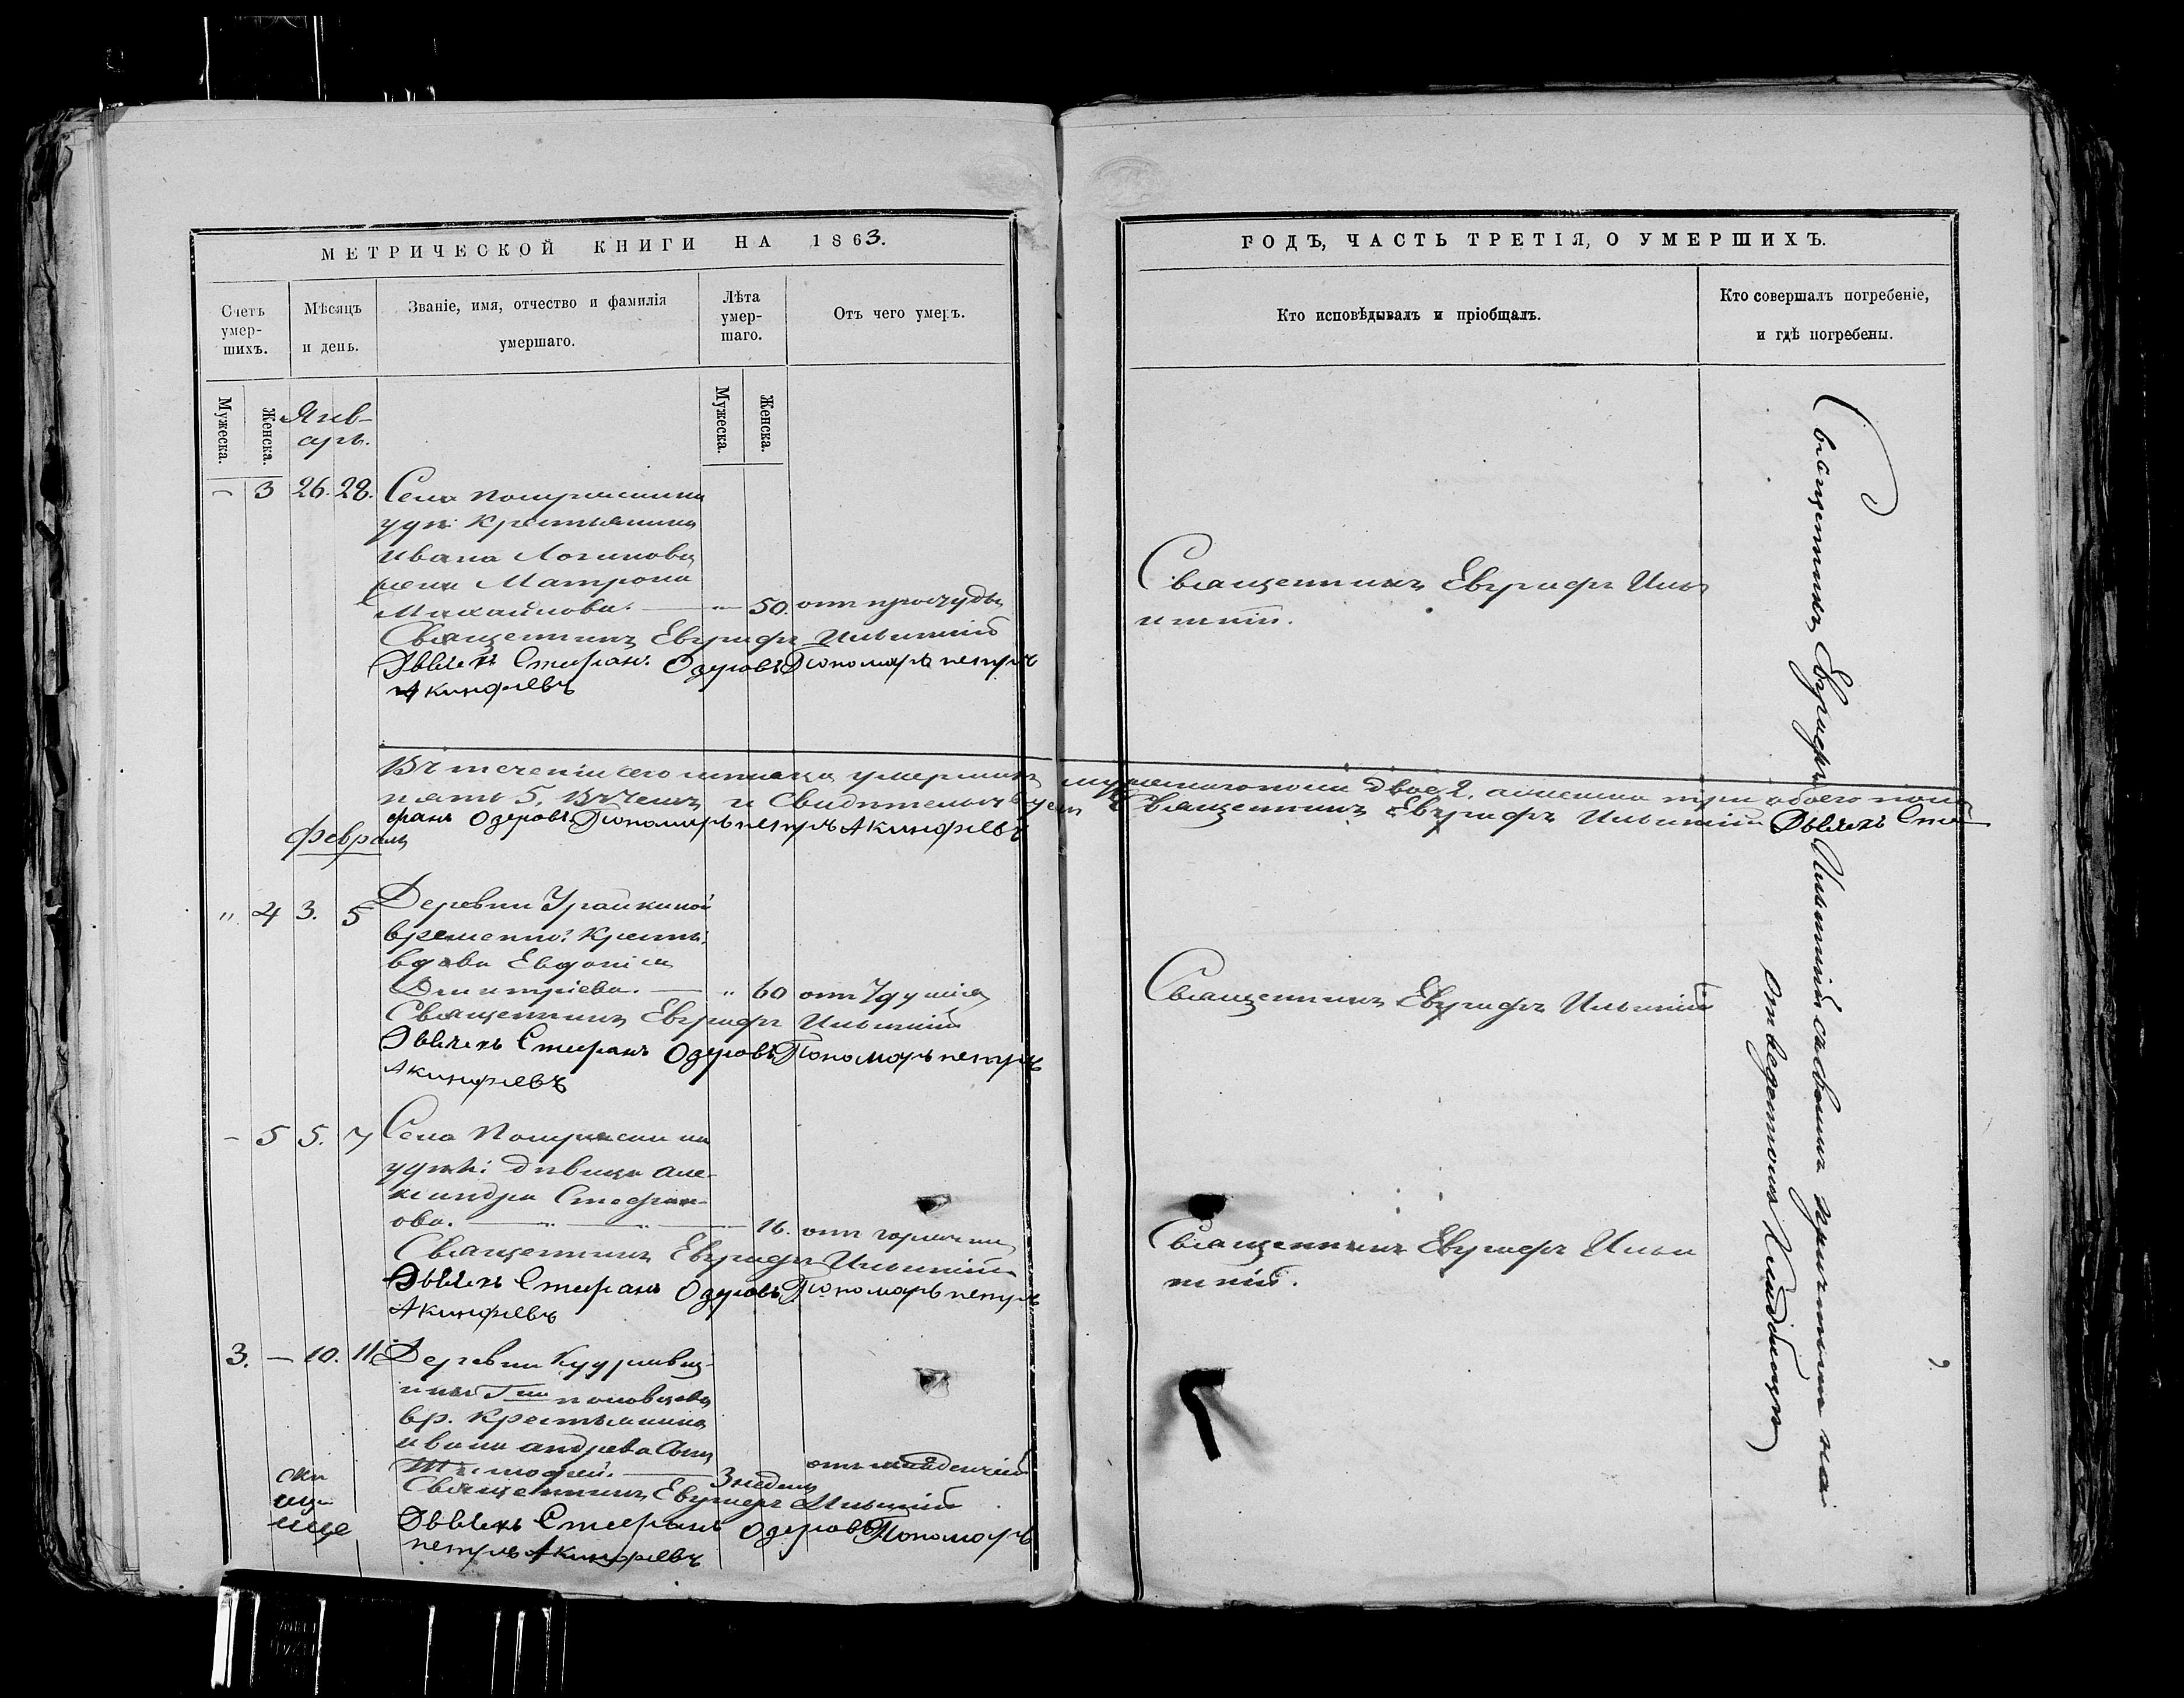 МЕТРИЧЕСКОЙ КНИГИ НА 1863.
Счетъ умер-шихъ.
Мѣсяцъ и день.
Званіе, имя, отчество и фамилія умершаго.
Лѣта умер-шаго.
Отъ чего умеръ.
Мужеска.
Женска.
Мужеска.
Женска.
Янв-
арь.
3 26. 28. Села
уд: крестьянина
Ивана Логинова
жена Матрона
Михайлова. — 50. отъ простуды
Священникъ Евграфъ Ильинскій
Дьячекъ Стефанъ Озеровъ Пономарь Петръ
Акинфіевъ
Въ теченіи сего мѣсяца умершихъ мужескаго пола двое 2, а женска три обоего пола
пять 5. Въ чемъ и свидѣтельствуемъ Священникъ Евграфъ Ильинскій Дьячекъ Сте
фанъ Озеровъ Пономарь Петръ Акинфіевъ
Февраль
" 4 3. 5 Деревни Урайкиной
временно: крест:
вдова Евдокія
Димитріева. — " 60 отъ удушія
Священникъ Евграфъ Ильинскій
Дьячекъ Стефанъ Озеровъ Пономарь Петръ
Акинфіевъ
- 5 5. 7 Села
удѣл: дѣвица Але-
ксандра Стефан-
ова. — 16. отъ горячки
Священникъ Евграфъ Ильинскій
Дьячекъ Стефанъ Озеровъ Пономарь Петръ
Акинфіевъ
3. — 10. 11. Деревни
вр. крестьянина
Ивана Андреева сынъ
Тимофей. — 3 недѣль отъ младенчес
Священникъ Евграфъ Ильинскій
Дьячекъ Стефанъ Озеровъ Пономарь
Петръ Акинфіевъ
ГОДЪ, ЧАСТЬ ТРЕТІЯ, О УМЕРШИХЪ.
Кто исповѣдывалъ и пріобщалъ.
Кто совершалъ погребеніе, и гдѣ погребены.
Священникъ Евграфъ Иль
инскій.
Священникъ Евграфъ Ильинскій
Священникъ Евграфъ Ильи
нскій.
Священникъ Евграфъ Ильинскій съ своимъ причтомъ на
отведенномъ кладбищѣ